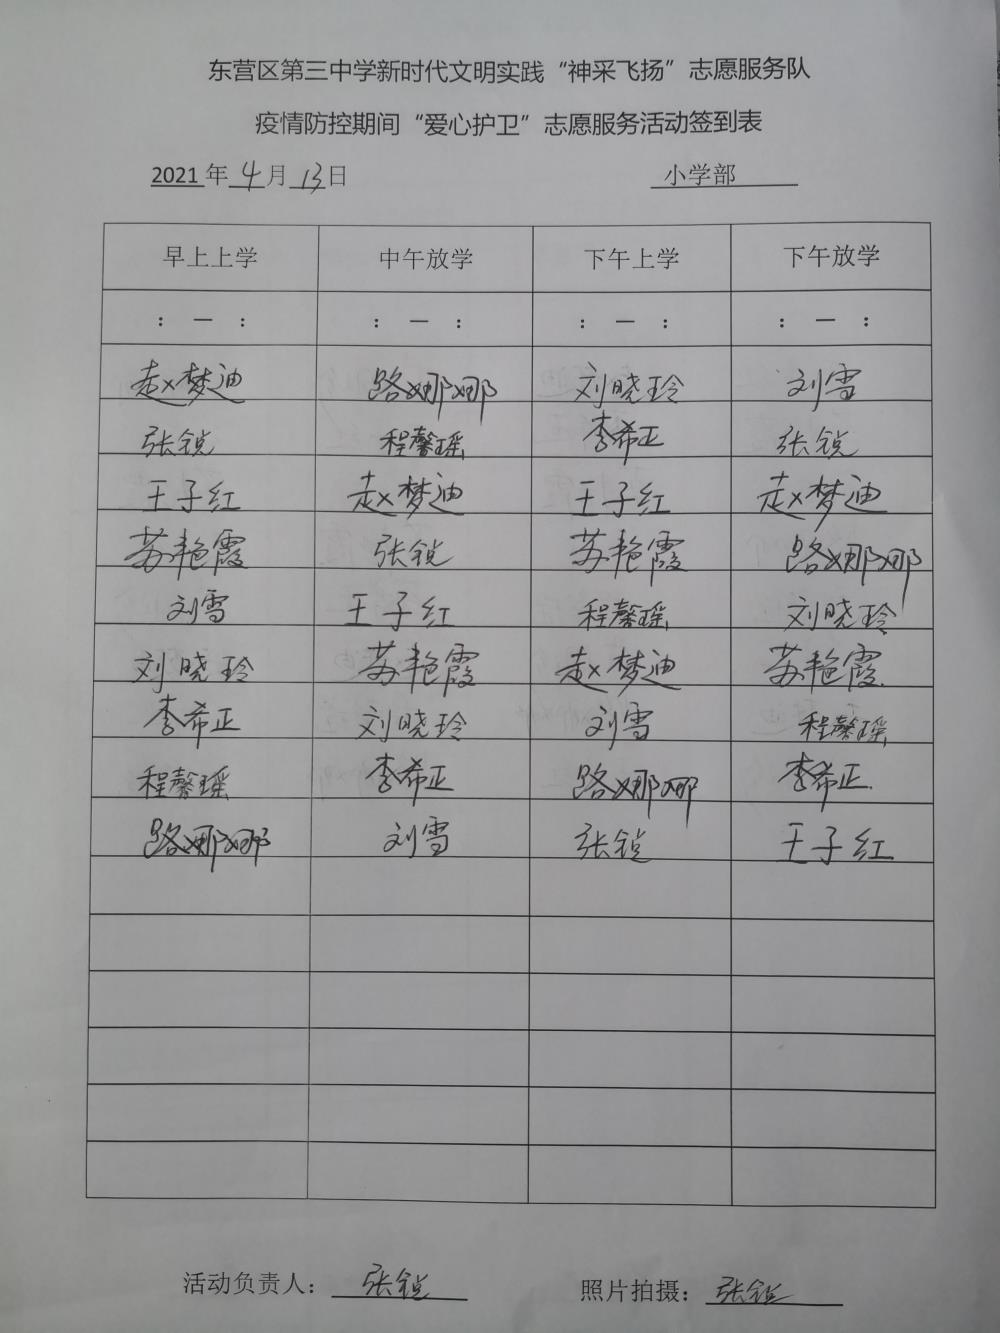 东营区第三中学新时代文明实践“神采飞扬”志愿服务队
疫情防控期间“爱心护卫”志愿服务活动签到表
2021年4月13日 小学部
早上上学 中午放学 下午上学 下午放学
: — : : — : : — : : — :
赵梦迪 路娜娜 刘晓玲 刘雪
张锐 程馨瑶 李希正 张锐
王子红 赵梦迪 王子红 赵梦迪
苏艳霞 张锐 苏艳霞 路娜娜
刘雪 王子红 程馨瑶 刘晓玲
刘晓玲 苏艳霞 赵梦迪 苏艳霞.
李希正 刘晓玲 刘雪 程馨瑶
程馨瑶 李希正 路娜娜 李希正.
路娜娜 刘雪 张锐 王子红
活动负责人：张锐 照片拍摄：张锐